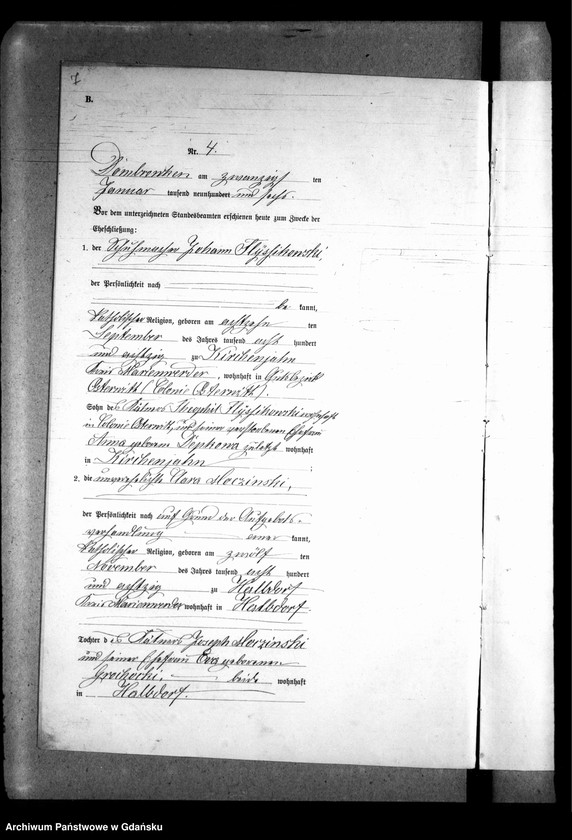 7
B.
Nr. 4.
am zwanzigsten
Januar tausend neunhundert und sechs.
Vor dem unterzeichneten Standesbeamten erschienen heute zum Zwecke der
Eheschließung:
1. der Schuhmacher Johann
der Persönlichkeit nach
be kannt,
katholischer Religion, geboren am achtzehn ten
September des Jahres tausend acht hundert
und achtzig zu Kirchenjahn
Kreis Marienwerder, wohnhaft in Gutsbezirk
Osterwitt (Colonie Osterwitt).
Sohn des Käthners Theophil wohnhaft
in Colonie Osterwitt, und seiner verstorbenen Ehefrau
Anna geborene zuletzt wohnhaft
in Kirchenjahn
2. die unverehelichte Clara
der Persönlichkeit nach auf Grund der Aufgebots-
verhandlung aner kannt,
katholischer Religion, geboren am zwölf ten
November des Jahres tausend acht hundert
und achtzig zu Halbdorf
Kreis Marienwerder wohnhaft in Halbdorf
Tochter des Käthners Joseph
und seiner Ehefrau Eva geborenen
beide wohnhaft
in Halbdorf.
Archiwum Państwowe w Gdańsku